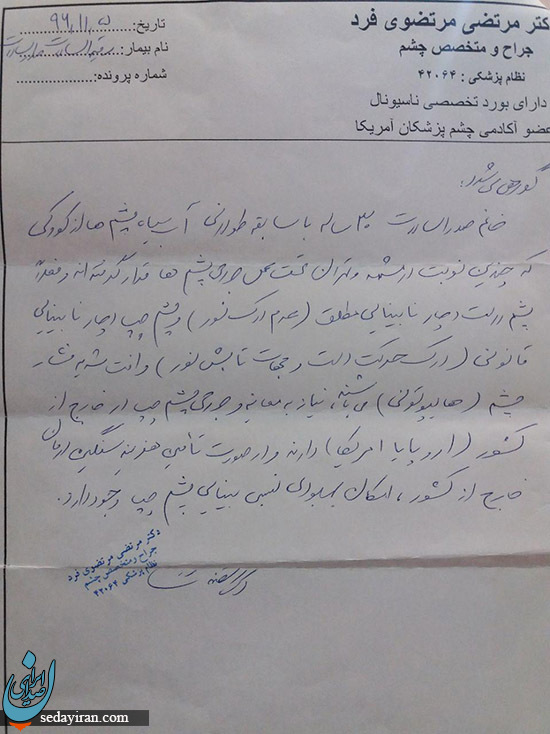 دکتر مرتضی مرتضوی فرد
جراح و متخصص چشم
نظام پزشکی : ۴۲۰۶۴
دارای بورد تخصصی ناسیونال
عضو آکادمی چشم پزشکان آمریکا
تاریخ: ۹۶/۱۱/۵
نام بیمار:
شماره پرونده:
گواهی می شود:
خانم صدرالسادات ۳۰ ساله با سابقه طولانی آب سیاه چشم ها از کودکی
که چندین نوبت در مشهد و تهران تحت عمل جراحی چشم ها قرار گرفته اند و فعلاً
چشم راست دچار نابینایی مطلق (عدم درک نور) و چشم چپ دچار نابینایی
قانونی (درک حرکت دست و جهات تابش نور) و افت شدید فشار
چشم (هایپوتونی) می باشند، نیاز به معاینه و جراحی چشم چپ در خارج از
کشور (اروپا یا امریکا) دارند و در صورت تأمین هزینه سنگین درمان
خارج از کشور، امکان بهبودی نسبی بینایی چشم چپ وجود دارد.
دکتر مرتضی مرتضوی فرد
جراح و متخصص چشم
نظام پزشکی ۴۲۰۶۴
صدای ایران
sedayiran.com